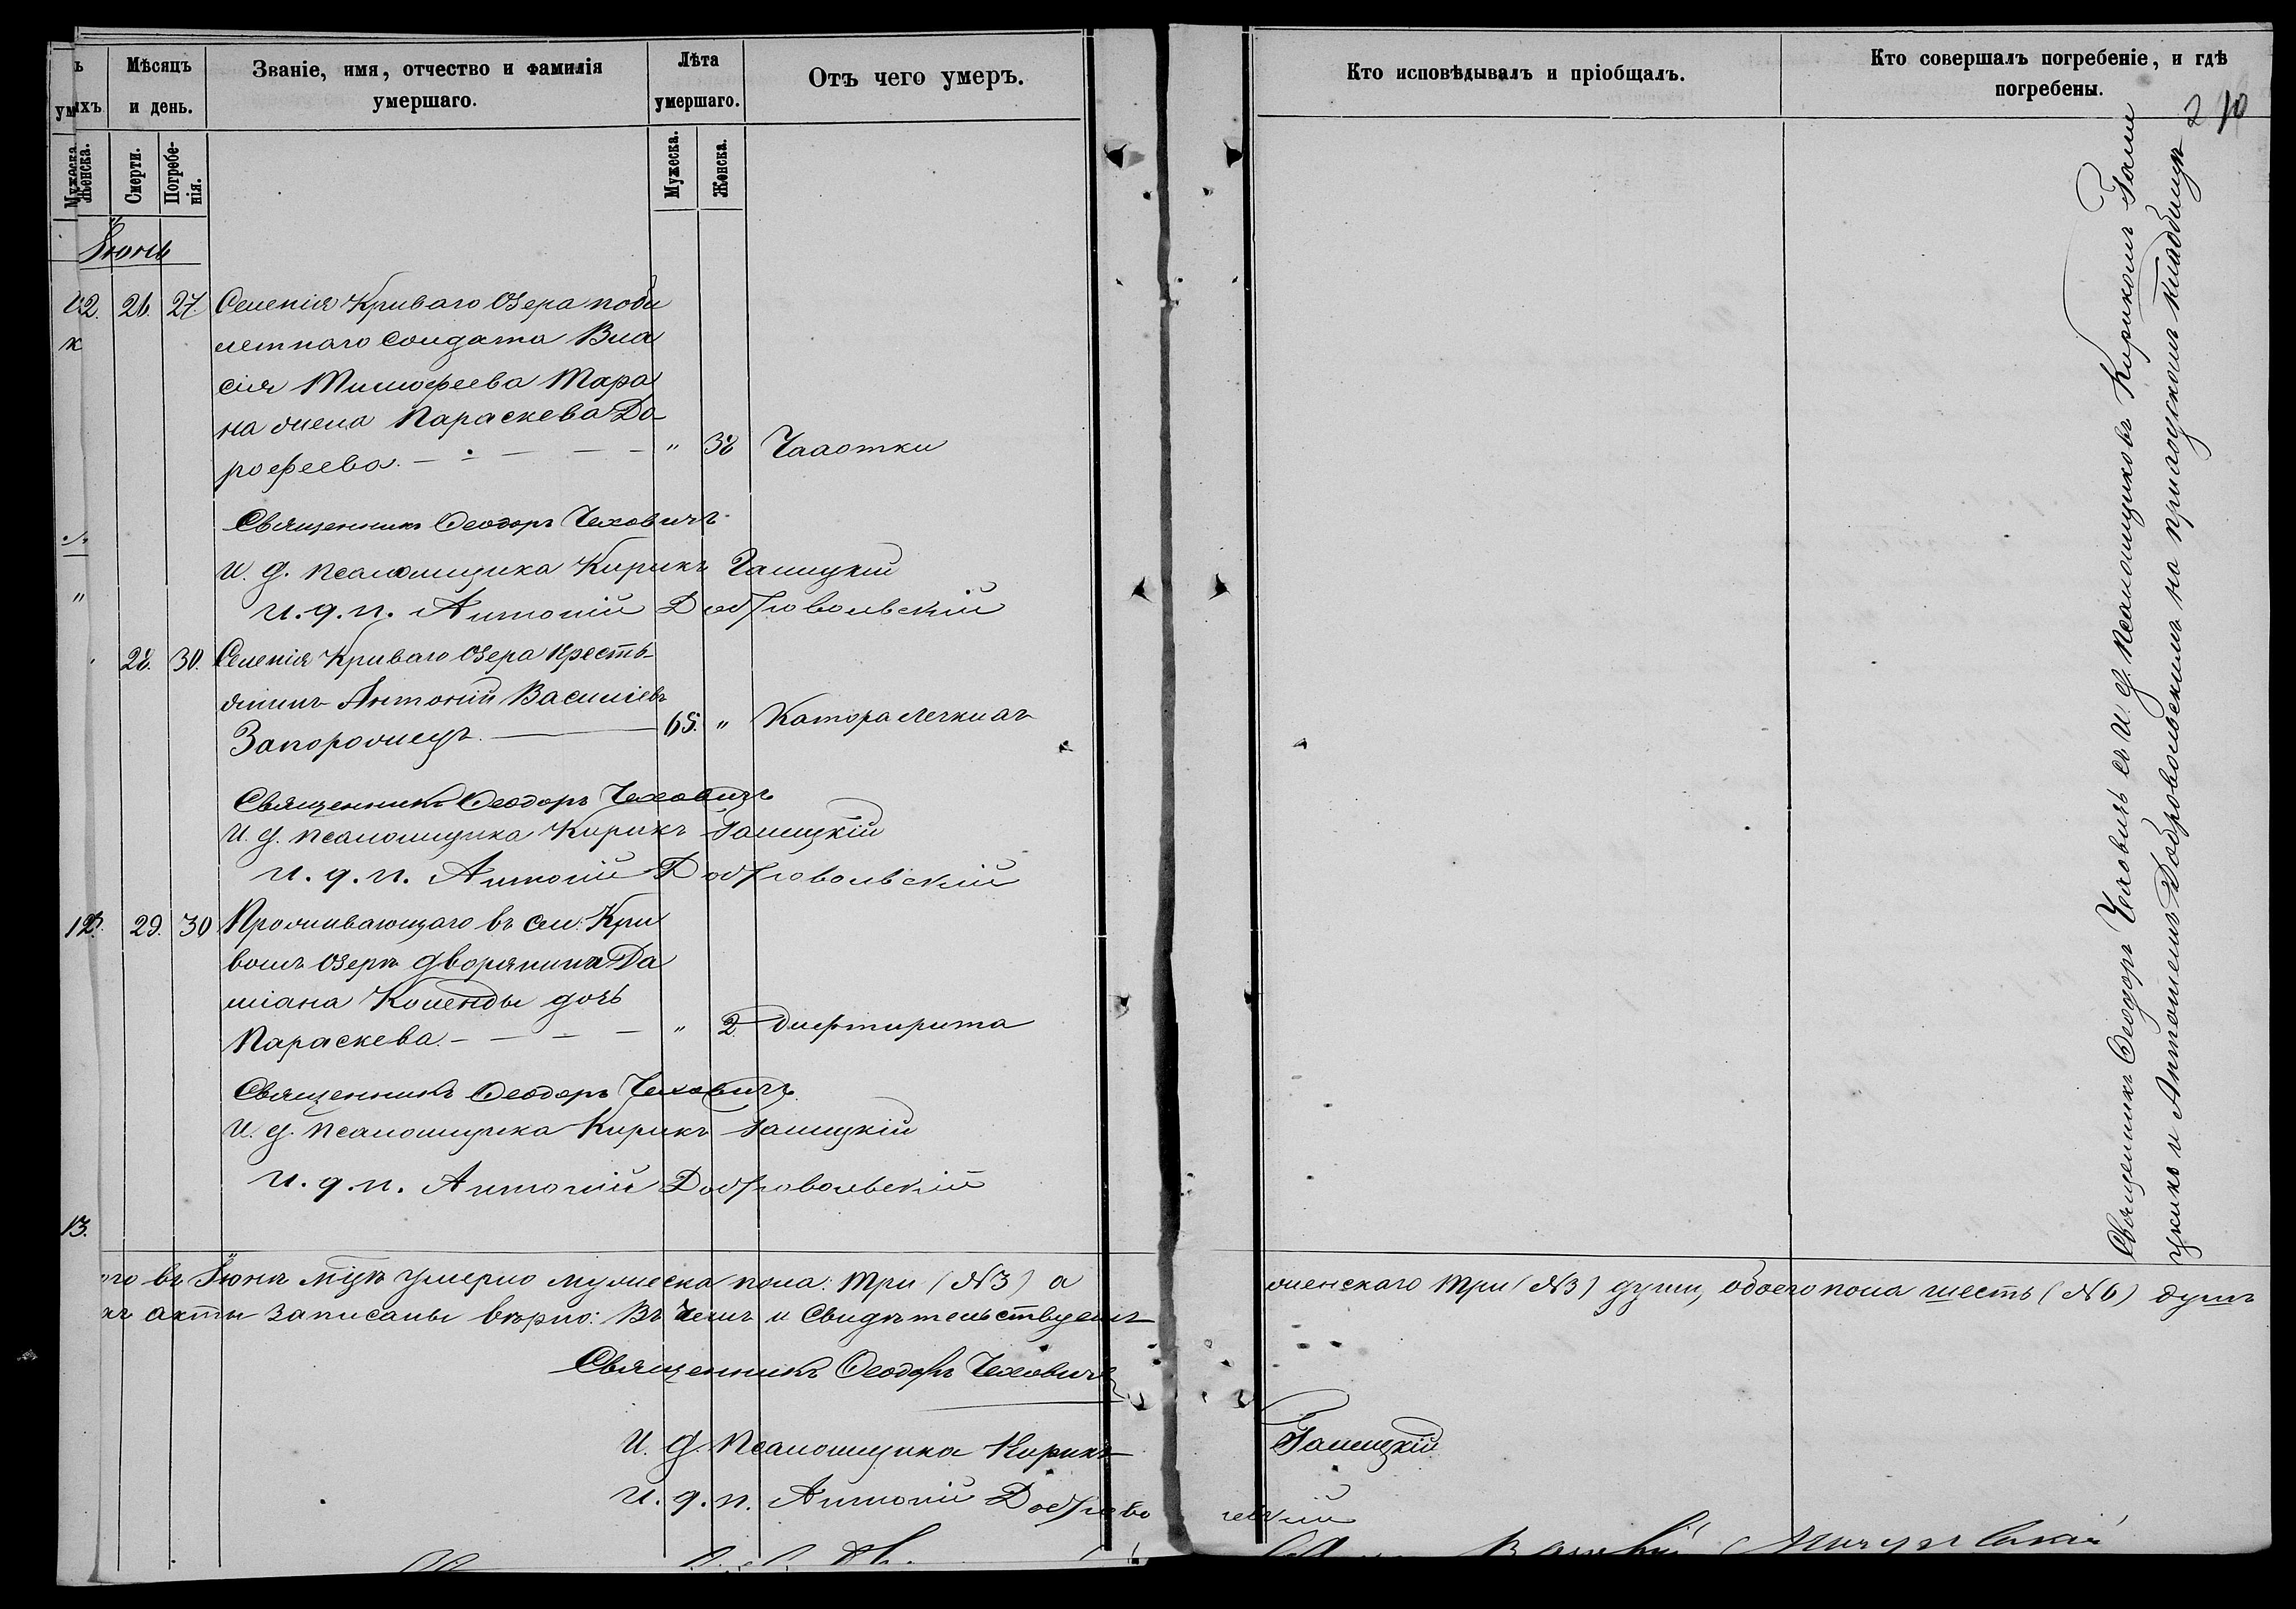 Мѣсяцъ и день.
Званіе, имя, отчество и фамилія умершаго.
Лѣта умершаго.
Отъ чего умеръ.
Кто исповѣдывалъ и пріобщалъ.
Кто совершалъ погребеніе, и гдѣ погребены.
Мужеска.
Женска.
Смерти.
Погребенія.
Мужеска.
Женска.
210
Іюнь
2. 26. 27. Селенія Криваго Озера поби
летнаго солдата Вла
сія Тимофеева Тара
на жена Параскева До-
рофеева. " 38 Чахотки
Священникъ Ѳеодоръ Чеховичъ
И. д. псаломщика Кирикъ Галицкій
И. д. п. Антоній Добровольскій
28. 30. Селенія Криваго Озера кресть-
янинъ Антоній Василіевъ
Запорожецъ. 65. " Катора легкихъ
Священникъ Ѳеодоръ Чеховичъ
И. д. псаломщика Кирикъ Галицкій
И. д. п. Антоній Добровольскій
29. 30 Проживающаго въ сел: Кри
вомъ Озерѣ дворянина Да
міана Коленды дочь
Параскева. " 2. дифтирита
Священникъ Ѳеодоръ Чеховичъ
И. д. псаломщика Кирикъ Галицкій
И. д. п. Антоній Добровольскій
13.
въ Іюнѣ м̃цѣ умерло мужеска пола: три (№3) а женскаго три (№3) души, обоего пола шесть (№6) душъ
акты записаны вѣрно: Въ чемъ и свидѣтельствуемъ
Священникъ Ѳеодоръ Чеховичъ
И. д. псаломщика Кирикъ Галицкій
И. д. п. Антоній Добровольскій
Священникъ Ѳеодоръ Чеховичъ съ И. д. псаломщиковъ Кирикомъ Гали
цкимъ и Антоніемъ Добровольскимъ на приходскомъ кладбищѣ